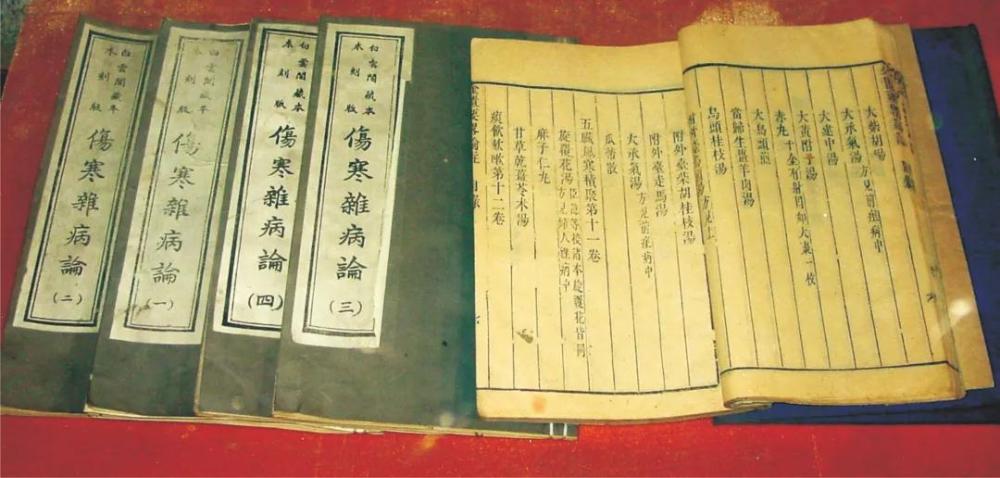 白雲閣藏本
木刻版
傷寒雜病論
(二)
白雲閣藏本
木刻版
傷寒雜病論
(一)
白雲閣藏本
木刻版
傷寒雜病論
(四)
白雲閣藏本
木刻版
傷寒雜病論
(三)
大柴胡湯方見前
病中
大承氣湯方見前痙病中
大建中湯
大黃附子湯
赤丸千金有射罔
大棗一枚
大烏頭煎
當歸生薑羊肉湯
烏頭桂枝湯
方見上
附外臺柴胡桂枝湯
附外臺走馬湯
大承氣湯方見前痙病中
瓜蒂散
五臟風寒積聚第十一卷
旋覆花湯方見婦人雜病中臣億等校諸本旋覆花皆同
麻子仁丸
甘草乾薑苓朮湯
痰飲欬嗽第十二卷